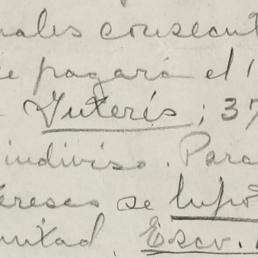 nales consecut
se pagará el 1
Interés; 37
indiviso. Para
ereses se hipo
mitad. Escv.